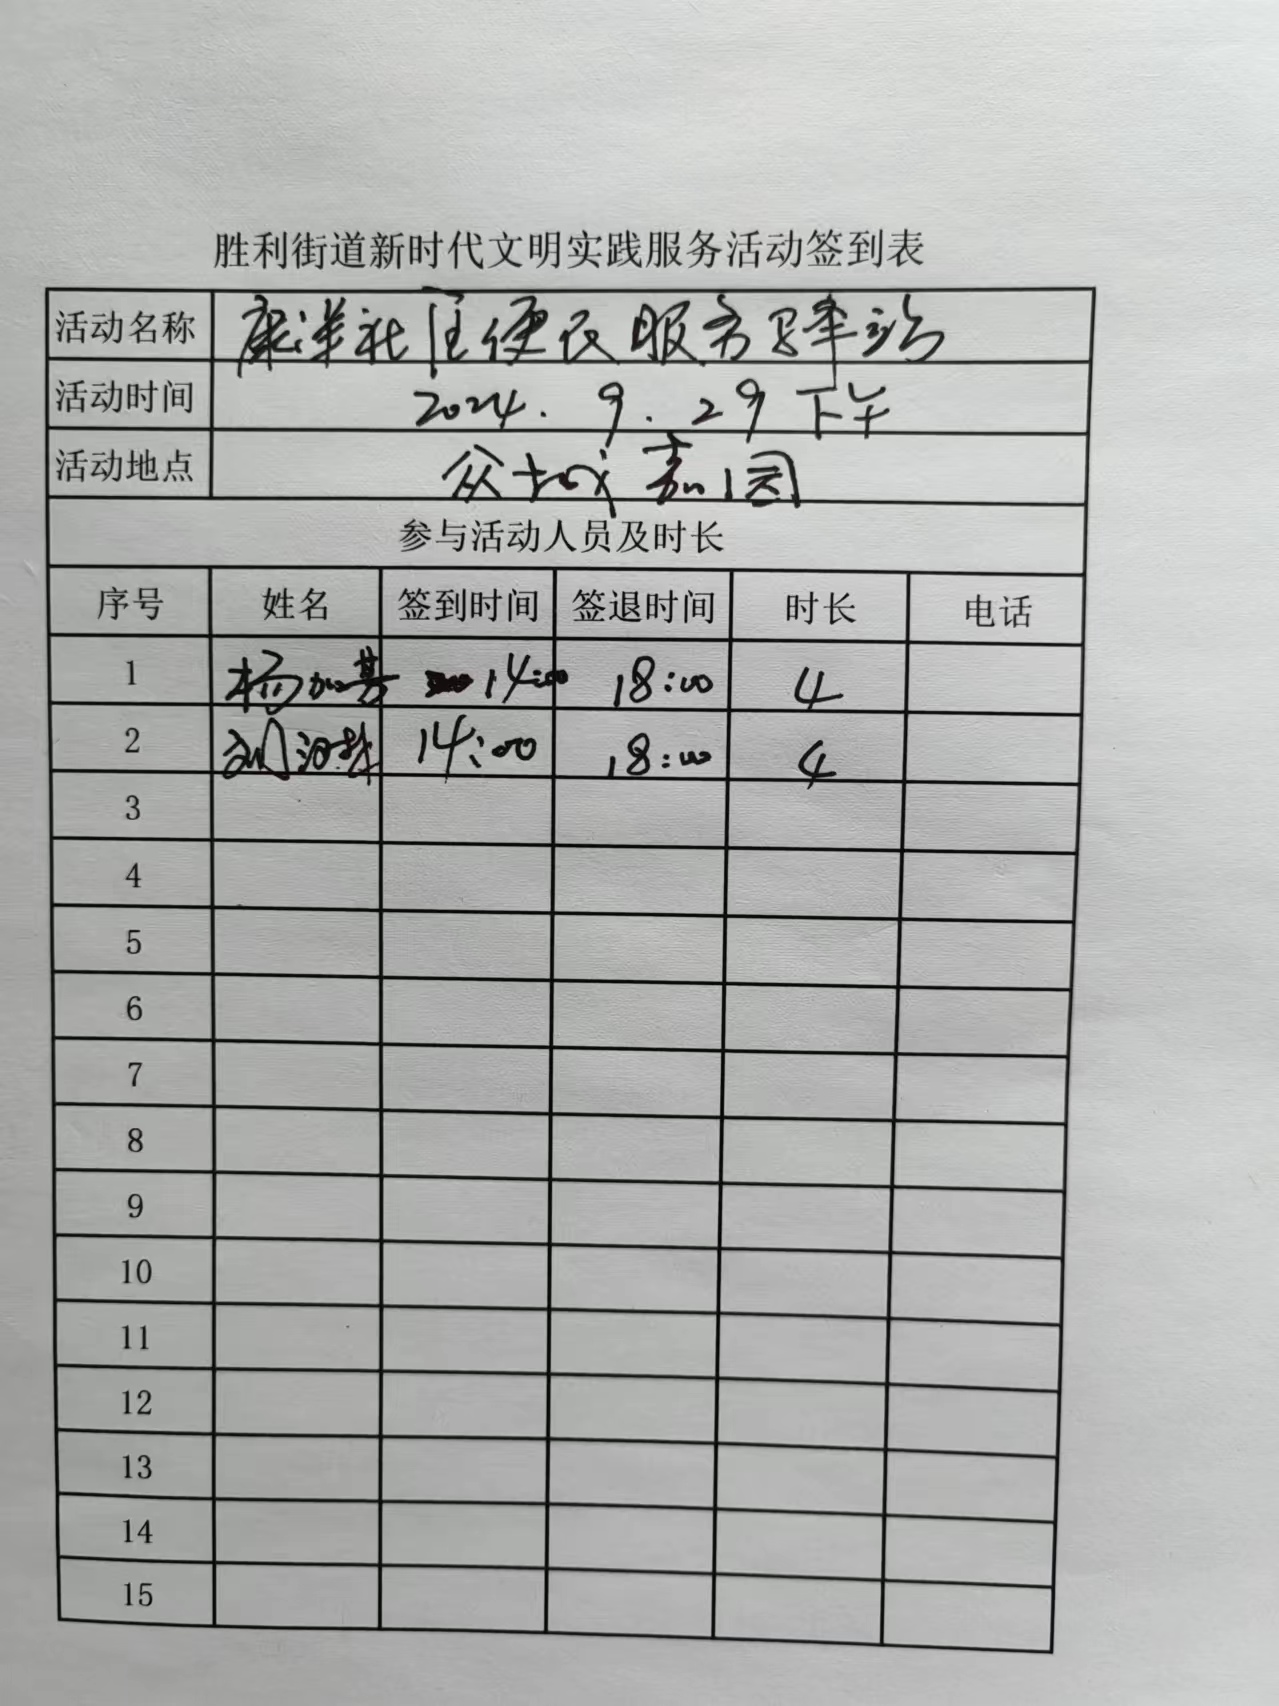 胜利街道新时代文明实践服务活动签到表
活动名称 康洋社区便民服务驿站
活动时间 2024.9.29下午
活动地点 众城嘉园
参与活动人员及时长
序号 姓名 签到时间 签退时间 时长 电话
1 杨加 14:00 18:00 4
2 刘 14:00 18:00 4
3
4
5
6
7
8
9
10
11
12
13
14
15